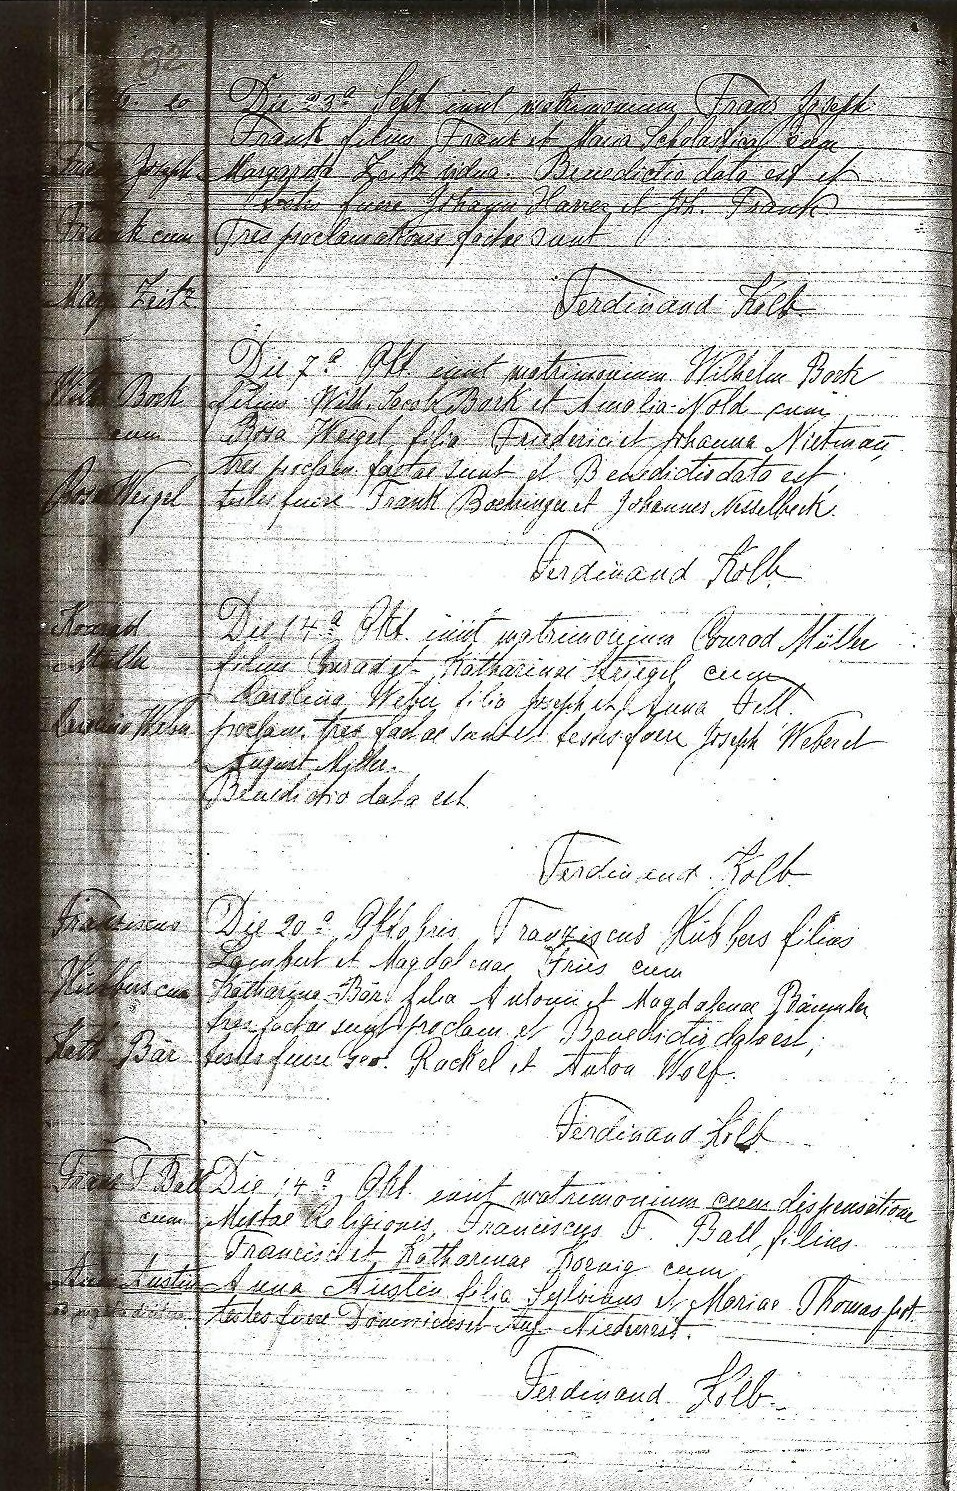 82
Die 23ª Sept iniit matrimonium Franz Joseph
Frank filius Franz et Maria Scholastica cum
Franz Joseph Margareta Zeitz vidua. Benedictio data est et
testes fuere Johann Harrer et Joh. Frank
Frank cum Tres proclamationes factae sunt
Marg Zeitz
Ferdinand Kolb.
Die 7ª Okt. iniit matrimonium Wilhelm Bork
Wilh Bork filius Wilh. Jacob Bork et Amalia Nold cum
cum Rosa Weigel filia Friederici et Johanna Nietman,
tres proclam. factae sunt et Benedictio data est,
Rosa Weigel testes fuere Frank Boehringer et Johannes Nesselbeck.
Ferdinand Kolb.
Konrad Die 14ª Okt. iniit matrimonium Conrad Müller
Muller filius Conrad et Katharinae Striegel cum
Karolina Weber filia Joseph et Anna Vell.
Karolina Weber proclam. tres factae sunt et testes fuere Joseph Weber et
August Miller.
Benedictio data est
Ferdinand Kolb.
Franziscus Die 20ª Oktobris Franziscus Hübbers filius
Lambert et Magdalenae Fries cum
Hübbers cum Katharina Bär filia Antonii et Magdalenae Bäumler
tres factae sunt proclam et Benedictio data est,
Kath Bär testes fuere Geo. Rackel et Anton Wolf.
Ferdinand Kolb
Franz F Ball Die 14ª Okt. iniit matrimonium cum dispensatione
cum Mixtae Religionis, Franciscus F. Ball, filius
Francisci et Katharinae Koenig cum
Anna Austin Anna Austin filia Sylvianus et Mariae Thomas
testes fuere Dominicus et Aug Niederest.
Ferdinand Kolb.